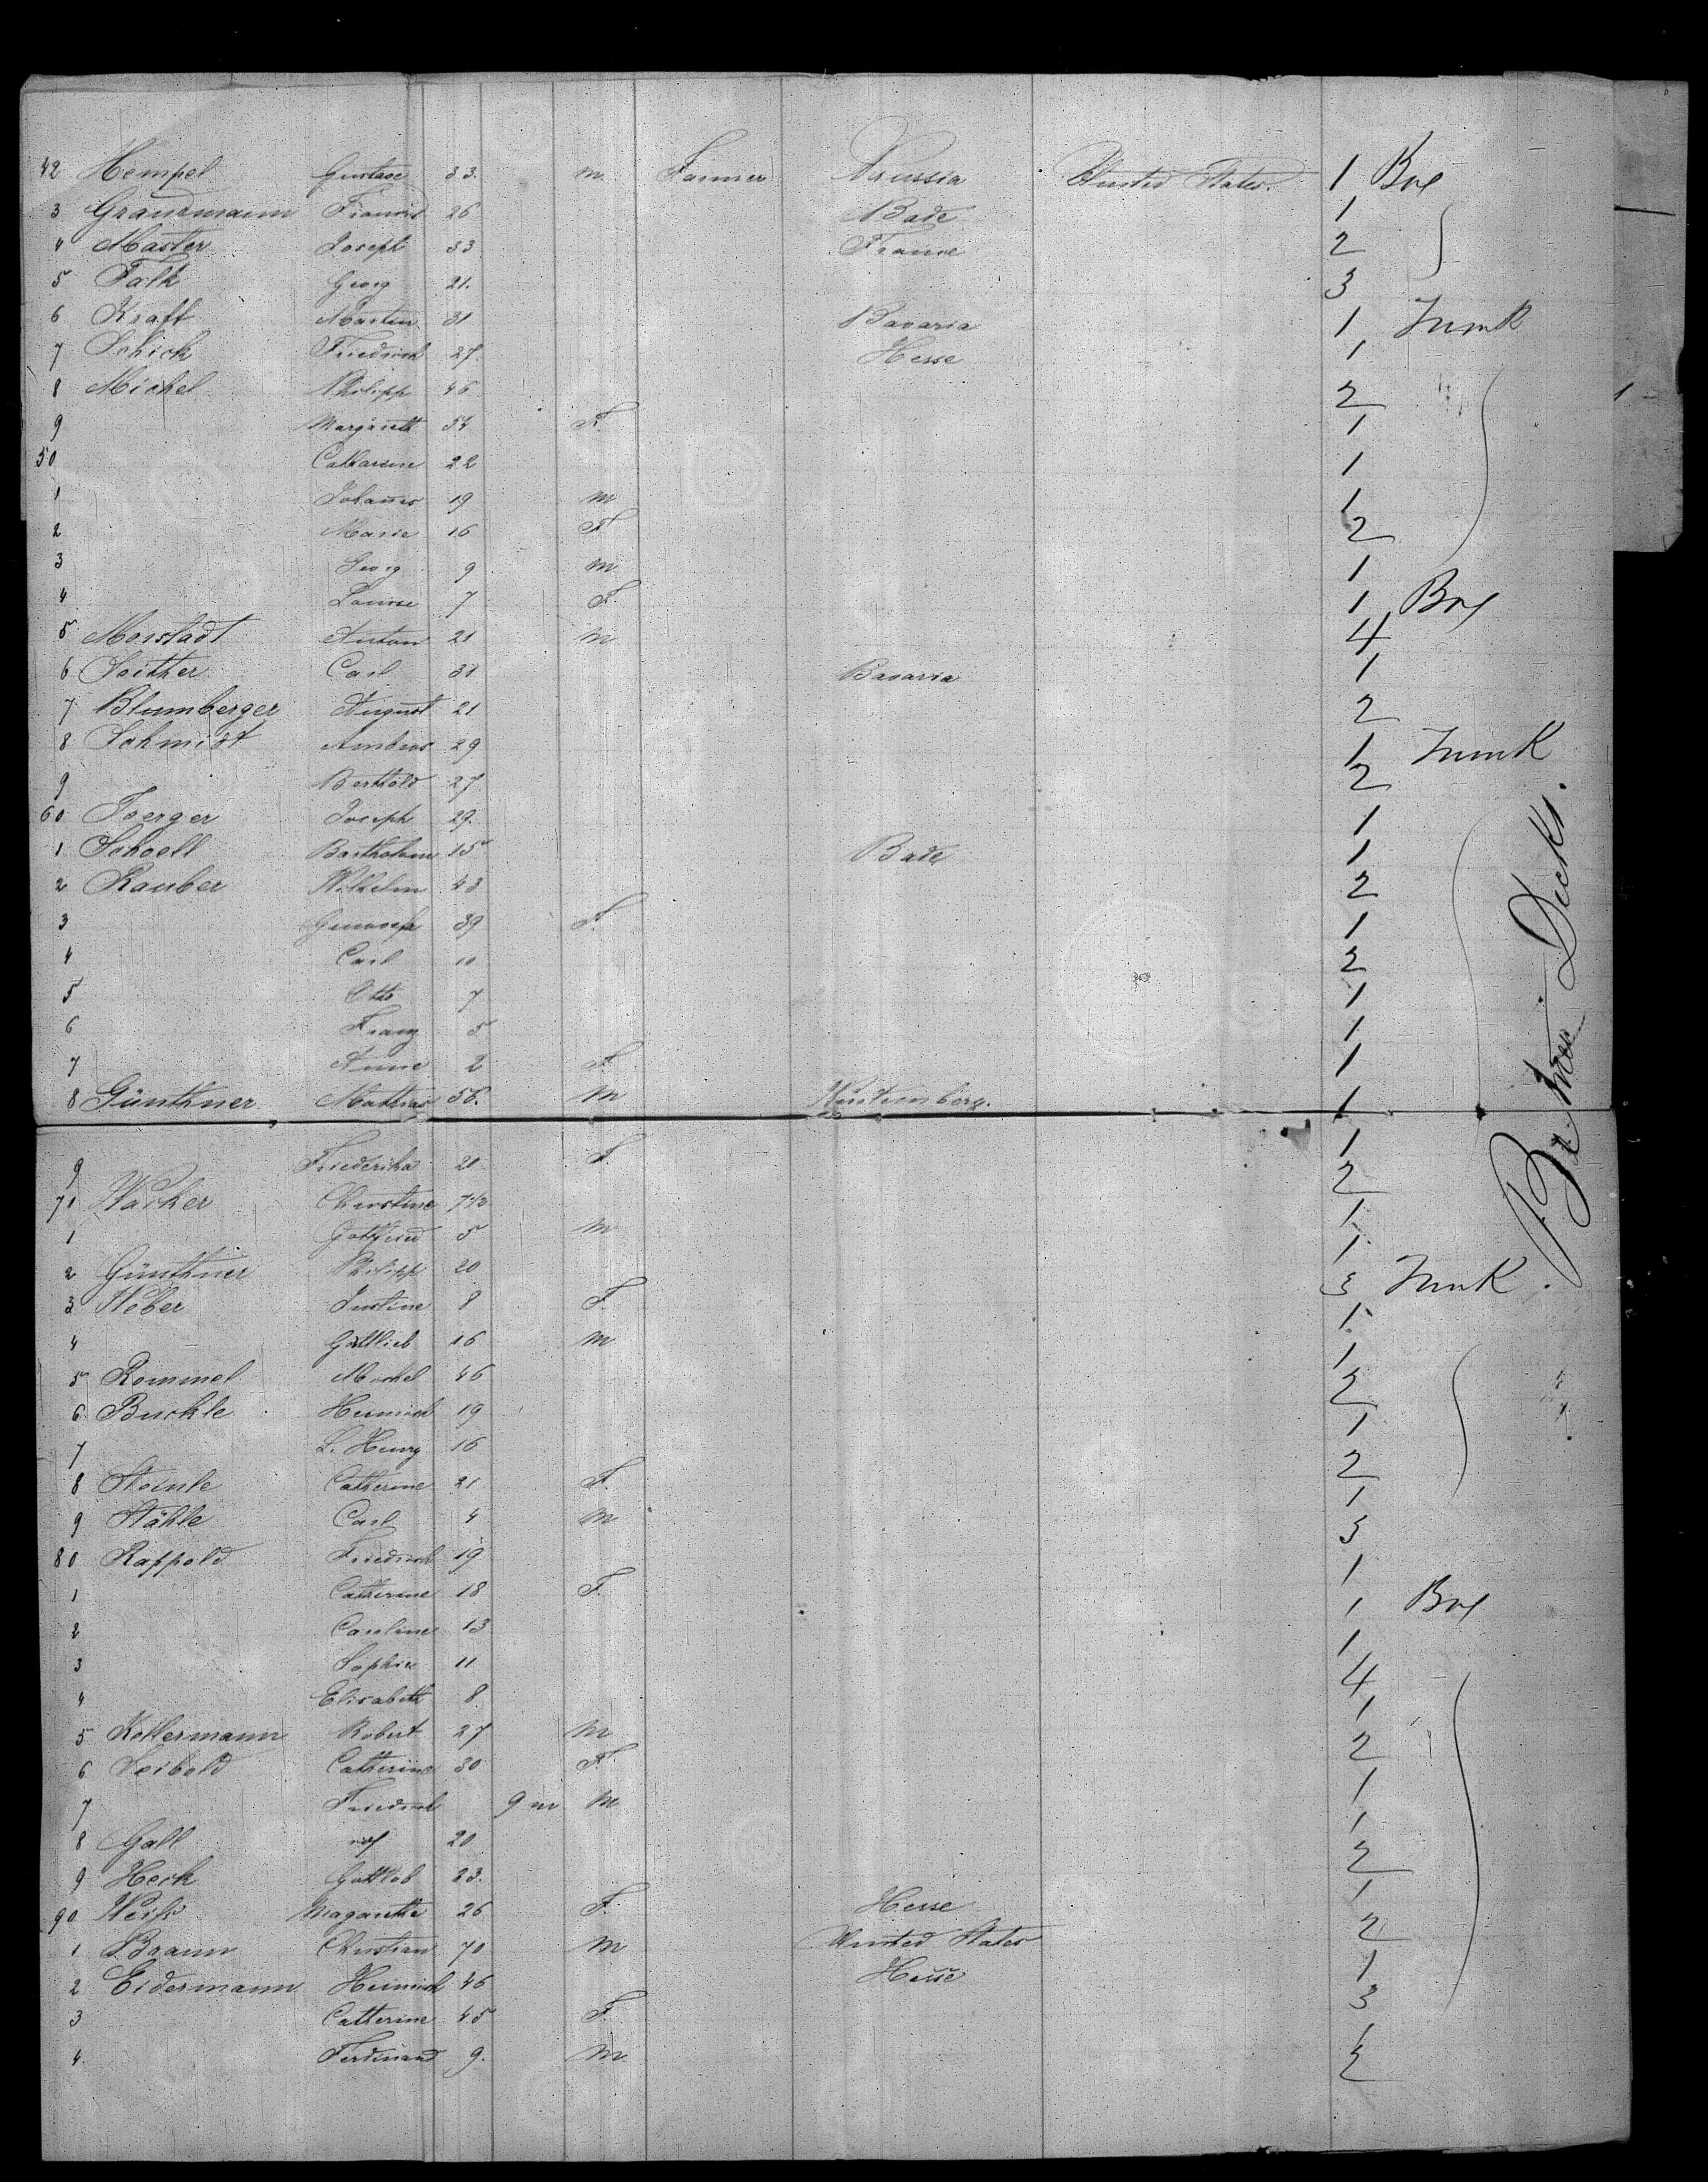 42 Hempel Gustave 33. m. Farmer Prussia United States. 1 Box
3 Grandmann Francis 26 Bade 1
4 Master Joseph 33 France 2
5 Falk Georg 21. 3
6 Kraft Martin 31 Bavaria 1 Trunk
7 Schick Friedrich 27. Hesse 1
8 Michel Philipp 46 2
9 Margareth 54 F. 1
50 Catharine 22 1
1 Johannes 19 m 1
2 Marie 16 F 2
3 Georg 9 m 1
4 Louise 7 F. 1 Box
5 Morstadt Anton 21 m 4
6 Seither Carl 31 Bavaria 1
7 Blumberger August 21 2
8 Schmidt Andreas 29 1 Trunk
9 Berthold 27 2
60 Joerger Joseph 29. 1
1 Schoell Bartholome 15 Bade 1
2 Rauber Wilhelm 43 2
3 39 F. 1
4 Carl 10 2
5 Otto 7 1
6 Franz 5 1
7 Anne 2 F 1
8 Günthner Mathias 56. m Wurtemberg. 1
9 Friederika 20 F. 1
2
71 Wacker Christine 7 1/2 1
1 Gottfried 5 m 1
2 Günthner Philipp 20 3 Trunk
3 Weber Justine 8 F. 1
4 Gottlieb 16 m 1
5 Rommel Michel 46 2
6 Buckle Heinrich 19 1
7 L. Henry 16 2
8 Steinle Catherine 21 F. 1
9 Stähle Carl 4 m 3
80 Rappold Friedrich 19 1
1 Catherine 18 F. 1 Box
2 Caroline 13 1
3 Sophie 11 4
4 Elisabeth 8 1
5 Kellermann Robert 27 m 2
6 Seibold Catherine 30 F. 1
7 Friedrich 9 m m 1
8 Gall 20 2
9 Heck Gottlob 23. 1
90 Weiss Magarethe 26 F. Hesse 2
1 Braun Christian 70 m United States 1
2 Eidermann Heinrich 46 Hesse 3
3 Catterine 45 F. 1
4. Ferdinand 9. m 2
Between Decks.